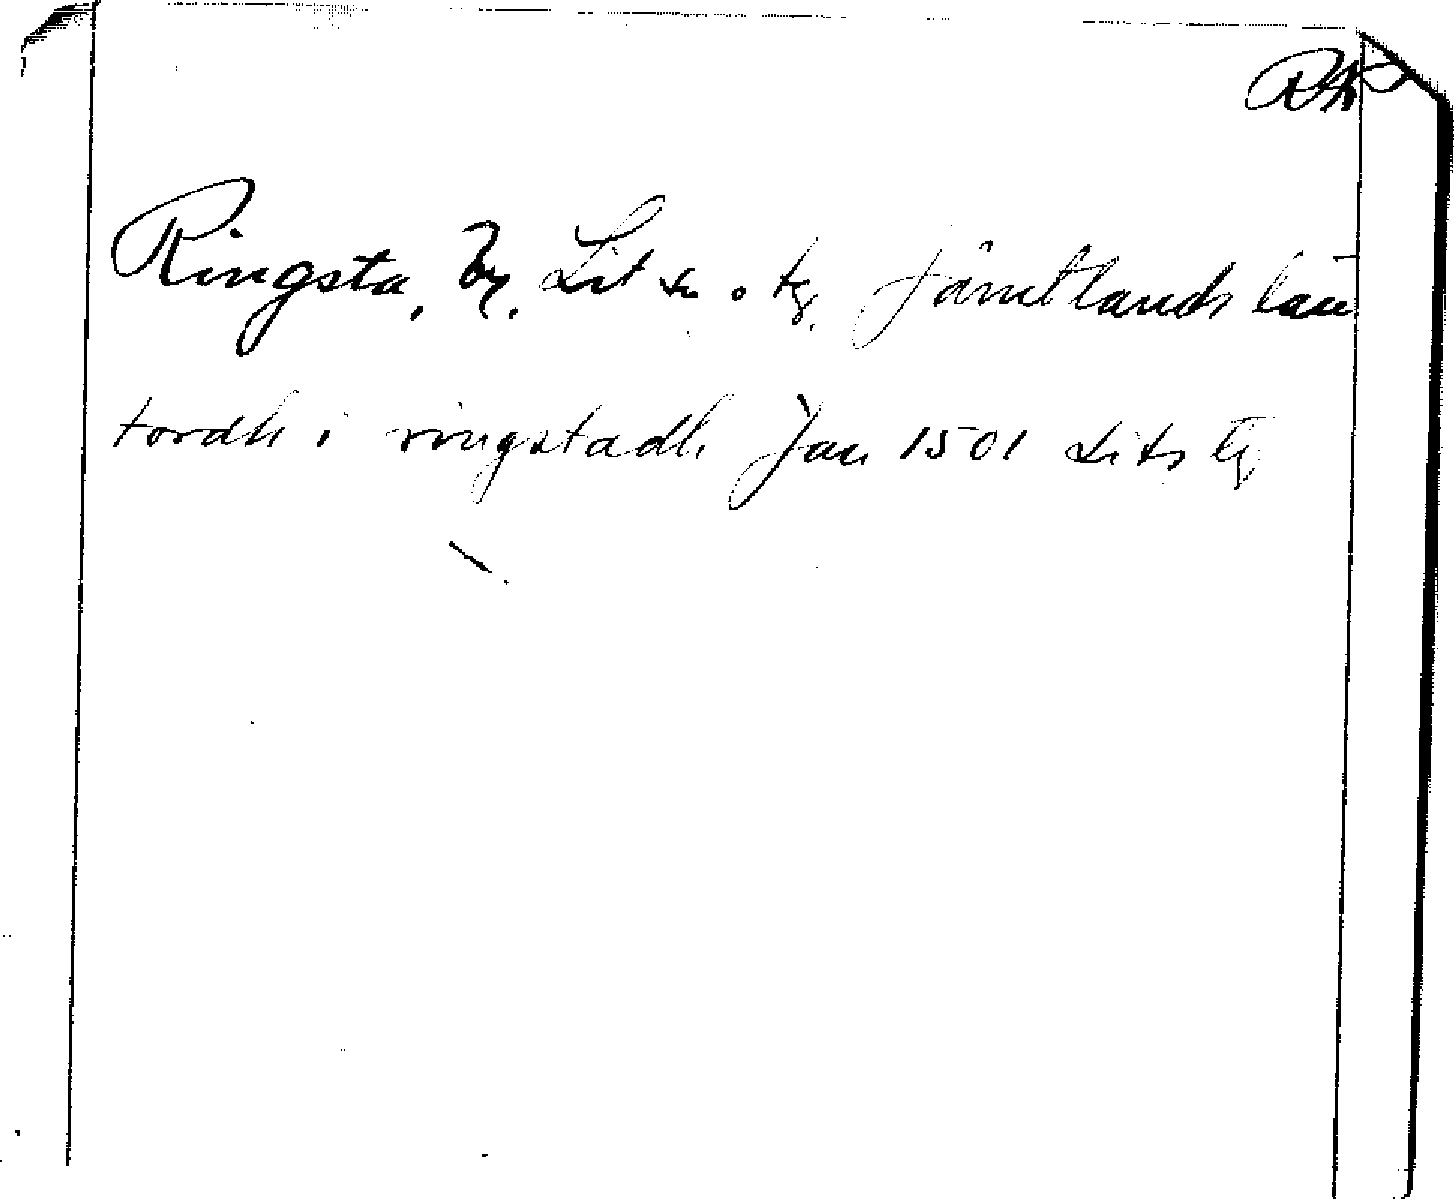 Ringsta, By. Lit sn o tg. Jämtlands län
tordh i ringstadh Jan 1501 Lits tg